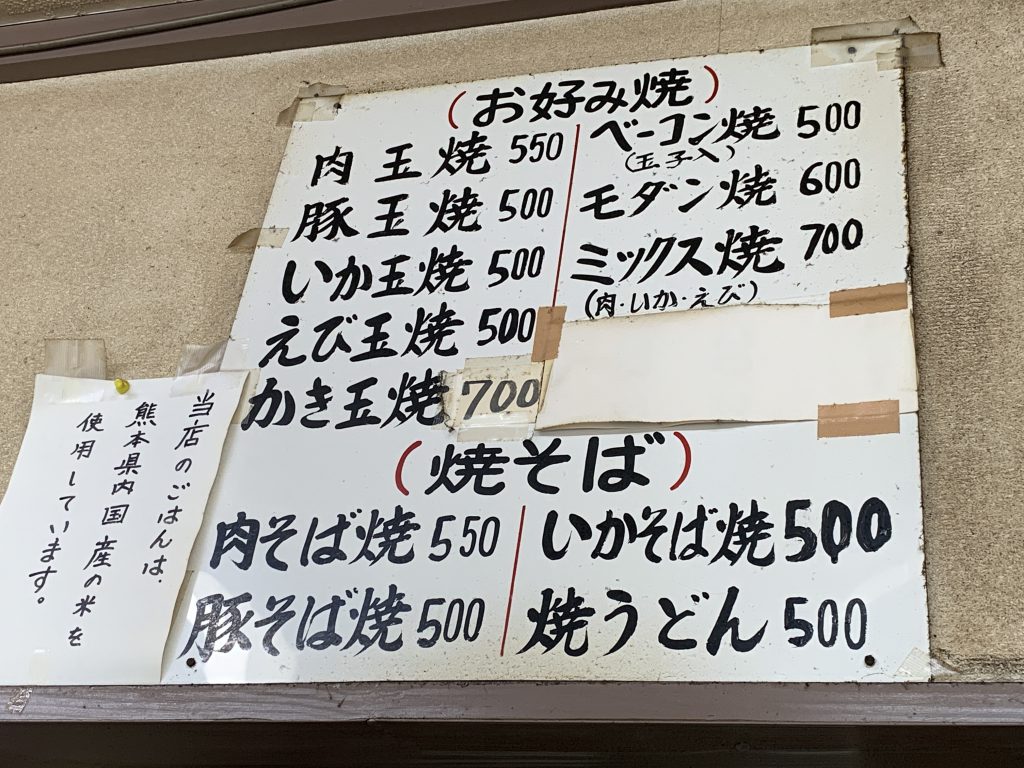 (お好み焼)
肉玉焼 550
豚玉焼 500
いか玉焼 500
えび玉焼 500
かき玉焼 700
ベーコン焼 500
(玉子入)
モダン焼 600
ミックス焼 700
(肉・いか・えび)
(焼そば)
肉そば焼 550
豚そば焼 500
いかそば焼 500
焼うどん 500
当店のごはんは、
熊本県内国産の米を
使用しています。